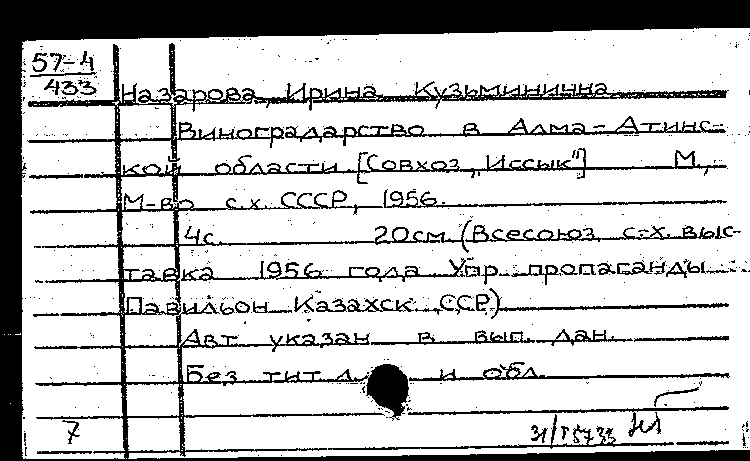 57-4
433
Назарова, Ирина Кузьмининна
Виноградарство в Алма-Атинс-
кой области [Совхоз „Иссык"] М.,
М-во с.х. СССР, 1956.
4с. 20см (Всесоюз. с-х. выс-
тавка 1956 года Упр. пропаганды
Павильон Казахск. ССР)
Авт указан в вып. дан.
Без тит л. и обл.
7